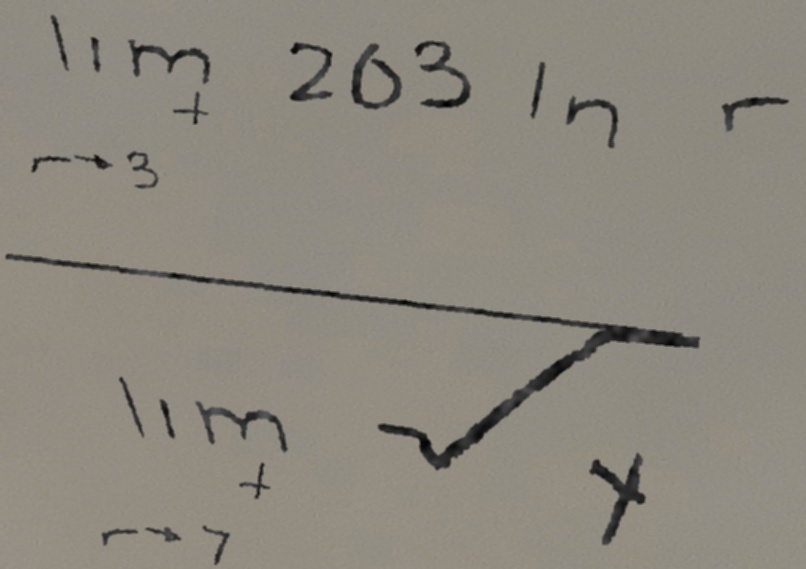 \frac{\lim_{r \to 3^+} 203 \ln r}{\lim_{r \to 7^+} \sqrt{y}}